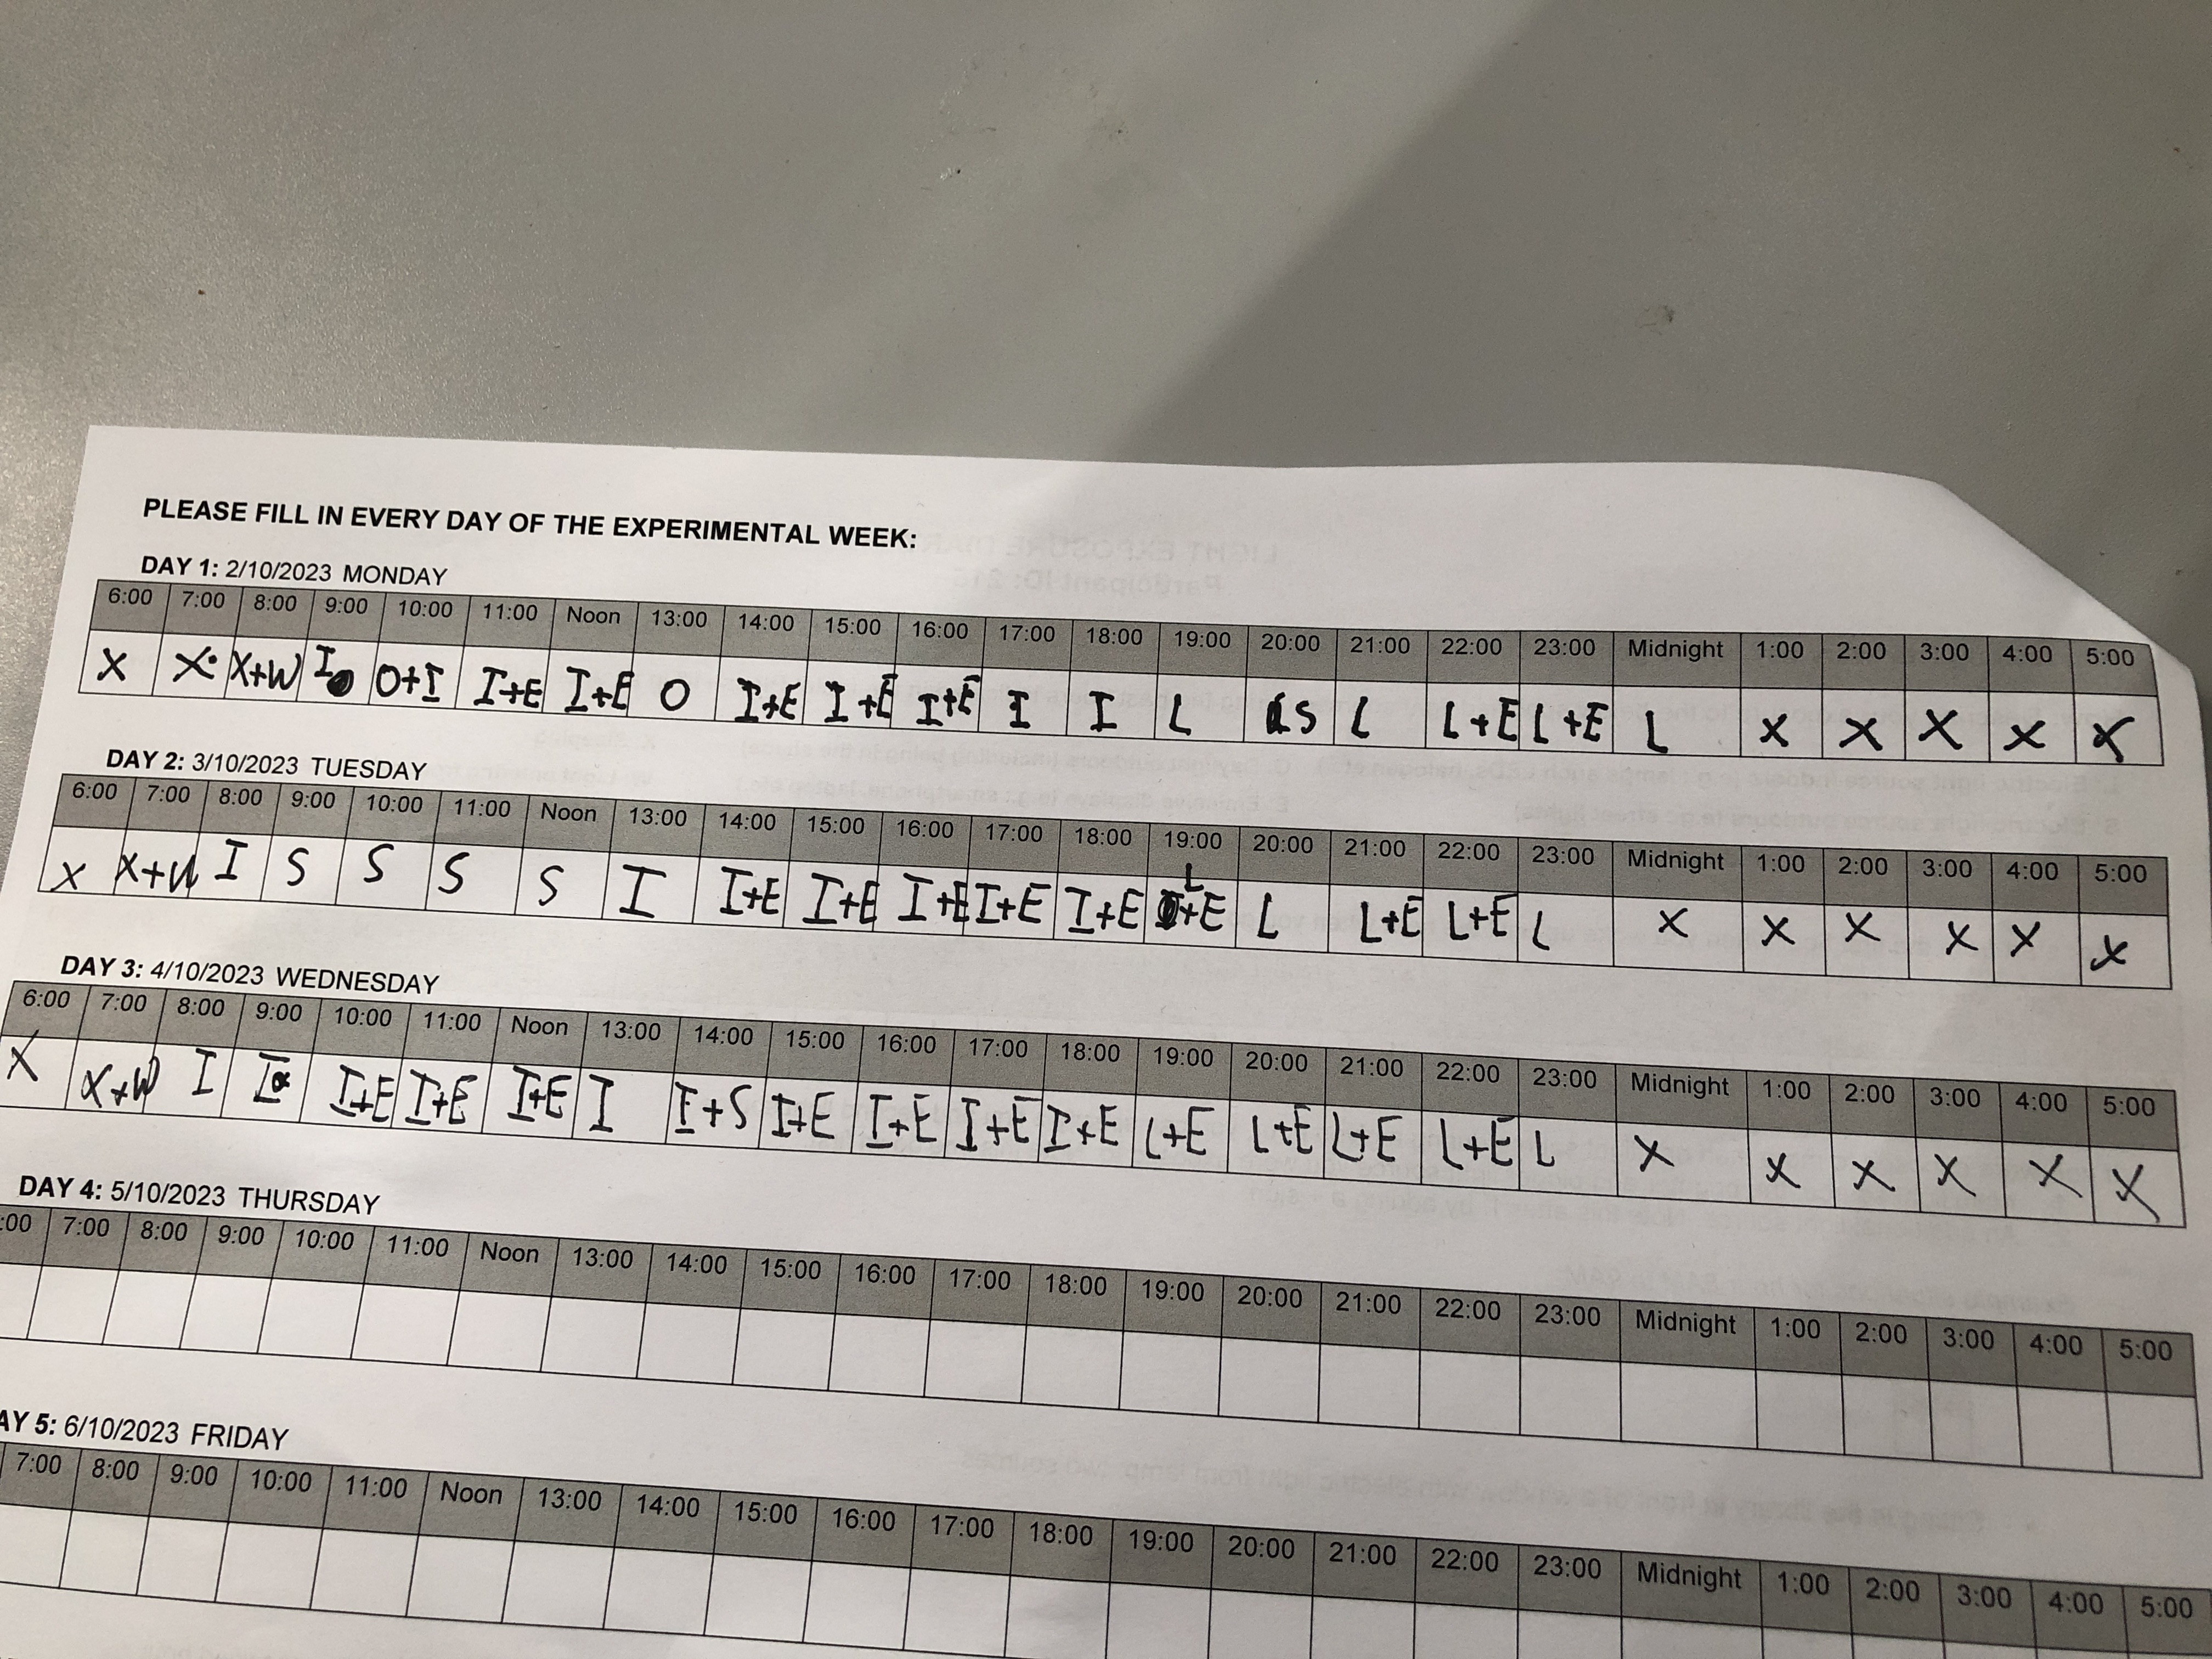 PLEASE FILL IN EVERY DAY OF THE EXPERIMENTAL WEEK:
DAY 1: 2/10/2023 MONDAY
6:00 7:00 8:00 9:00 10:00 11:00 Noon 13:00 14:00 15:00 16:00 17:00 18:00 19:00 20:00 21:00 22:00 23:00 Midnight 1:00 2:00 3:00 4:00 5:00
X X X+W I O+I I+E I+E O I+E I+E I+E I I L S L L+E L+E L X X X X X
DAY 2: 3/10/2023 TUESDAY
6:00 7:00 8:00 9:00 10:00 11:00 Noon 13:00 14:00 15:00 16:00 17:00 18:00 19:00 20:00 21:00 22:00 23:00 Midnight 1:00 2:00 3:00 4:00 5:00
X X+W I S S S S I I+E I+E I+E I+E I+E L+E L L+E L+E L X X X X X X
DAY 3: 4/10/2023 WEDNESDAY
6:00 7:00 8:00 9:00 10:00 11:00 Noon 13:00 14:00 15:00 16:00 17:00 18:00 19:00 20:00 21:00 22:00 23:00 Midnight 1:00 2:00 3:00 4:00 5:00
X X+W I I I+E I+E I+E I I+S I+E I+E I+E I+E L+E L+E L+E L+E L X X X X X X
DAY 4: 5/10/2023 THURSDAY
:00 7:00 8:00 9:00 10:00 11:00 Noon 13:00 14:00 15:00 16:00 17:00 18:00 19:00 20:00 21:00 22:00 23:00 Midnight 1:00 2:00 3:00 4:00 5:00
AY 5: 6/10/2023 FRIDAY
7:00 8:00 9:00 10:00 11:00 Noon 13:00 14:00 15:00 16:00 17:00 18:00 19:00 20:00 21:00 22:00 23:00 Midnight 1:00 2:00 3:00 4:00 5:00